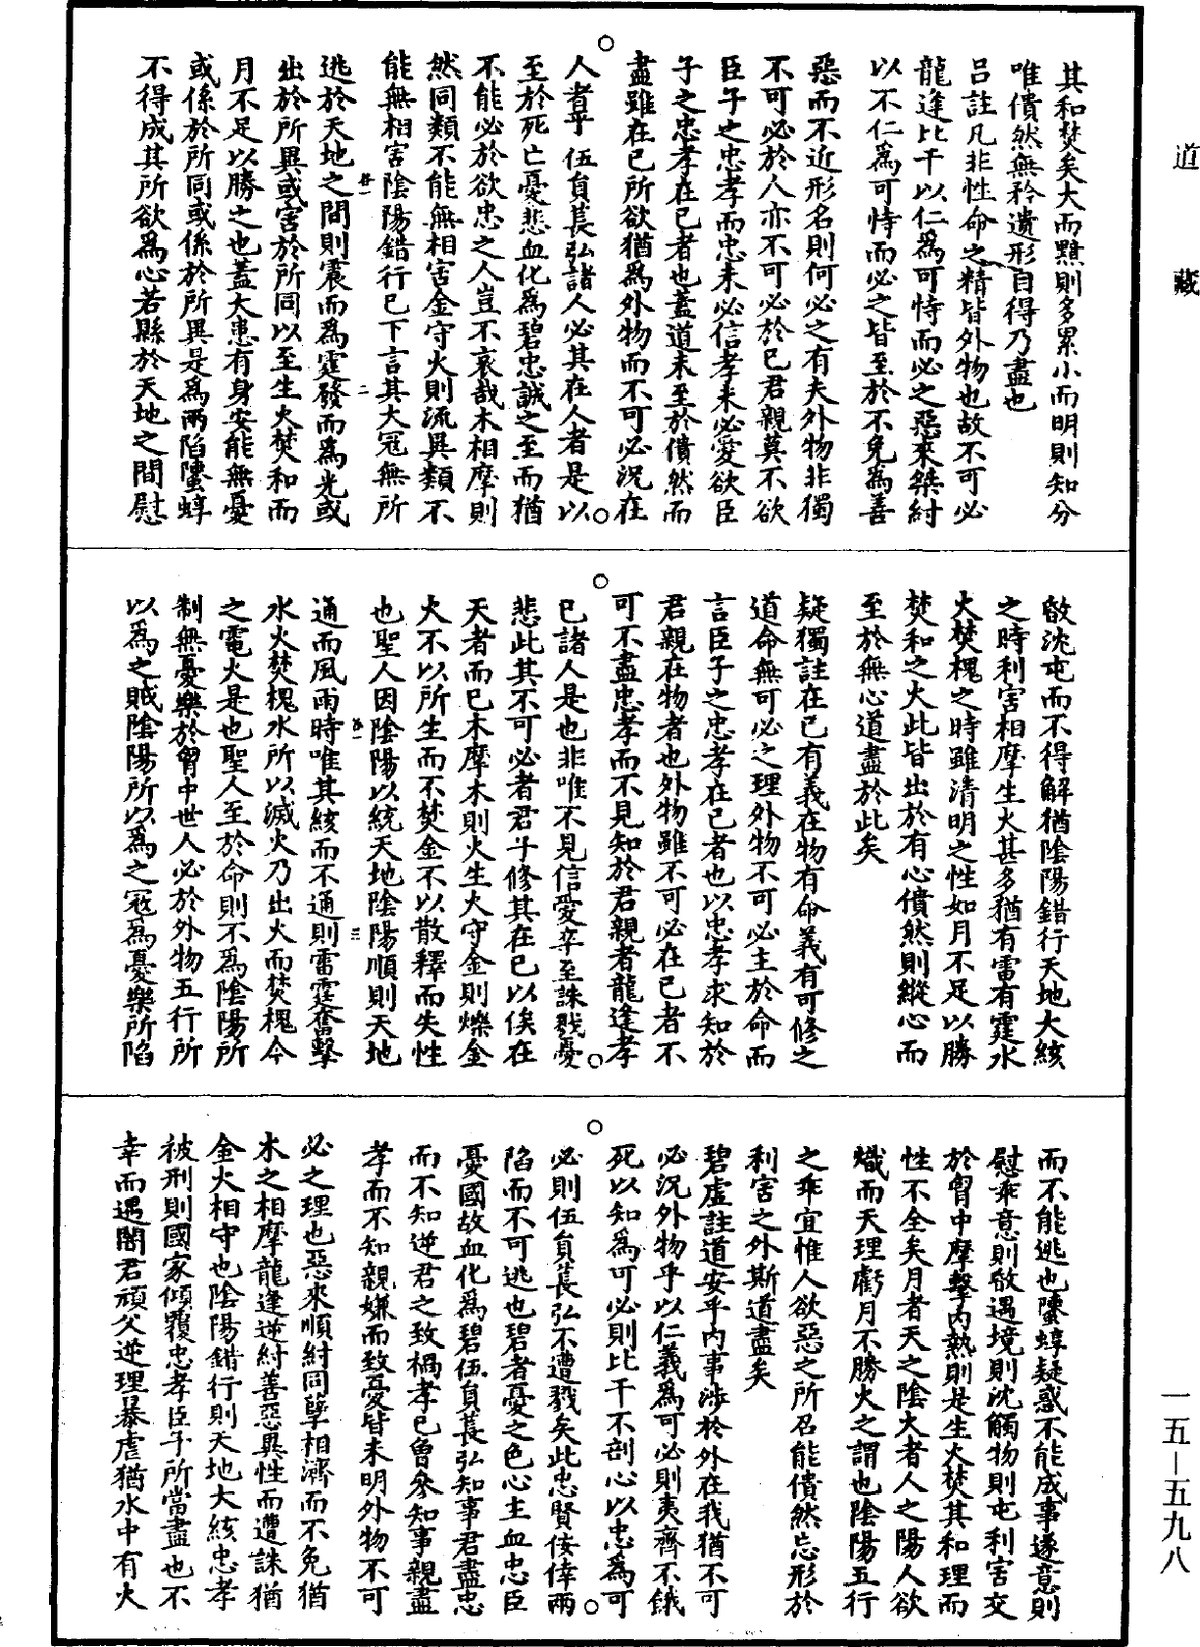 道藏
其和焚矣大而黯則多累小而明則知分
唯僓然無矜遺形自得乃盡也
吕註凡非性命之精皆外物也故不可必
龍逢比干以仁爲可恃而必之惡來桀紂
以不仁爲可恃而必之皆至於不免爲善
惡而不近形名則何必之有夫外物非獨
不可必於人亦不可必於已君親莫不欲
臣子之忠孝而忠未必信孝未必愛欲臣
子之忠孝在已者也蓋道未至於僓然而
盡雖在已所欲猶爲外物而不可必況在
人者乎伍員萇弘諸人必其在人者是以
至於死亡憂悲血化爲碧忠誠之至而猶
不能必於欲忠之人豈不哀哉木相摩則
然同類不能無相害金守火則流異類不
能無相害陰陽錯行已下言其大寇無所
逃於天地之間則震而爲霆發而爲光或
出於所異或害於所同以至生火焚和而
月不足以勝之也蓋大患有身安能無憂
或係於所同或係於所異是爲兩陷𧑒蜳
不得成其所欲爲心若縣於天地之間慰
敃沈屯而不得解猶陰陽錯行天地大絃
之時利害相摩生火甚多猶有雷有霆水
火焚槐之時雖清明之性如月不足以勝
焚和之火此皆出於有心僓然則縱心而
至於無心道盡於此矣
疑獨註在已有義在物有命義有可修之
道命無可必之理外物不可必主於命而
言臣子之忠孝在已者也以忠孝求知於
君親在物者也外物雖不可必在已者不
可不盡忠孝而不見知於君親者龍逢孝
已諸人是也非唯不見信愛卒至誅戮憂
悲此其不可必者君子修其在已以俟在
天者而已木摩木則火生火守金則爍金
火不以所生而不焚金不以散釋而失性
也聖人因陰陽以統天地陰陽順則天地
通而風雨時唯其絃而不通則雷霆奮擊
水火焚槐水所以滅火乃出火而焚槐今
之電火是也聖人至於命則不爲陰陽所
制無憂樂於胷中世人必於外物五行所
以爲之賊陰陽所以爲之寇爲憂樂所陷
而不能逃也𧑒蜳疑惑不能成事遂意則
慰乖意則敃遇境則沈觸物則屯利害交
於胷中摩擊内熱則是生火焚其和理而
性不全矣月者天之陰火者人之陽人欲
熾而天理虧月不勝火之謂也陰陽五行
之乖宜惟人欲惡之所召能僓然忘形於
利害之外斯道盡矣
碧虛註道安乎内事涉於外在我猶不可
必況外物乎以仁義爲可必則夷齊不餓
死以知爲可必則比干不剖心以忠爲可
必則伍員萇弘不遭戮矣此忠賢佞倖兩
陷而不可逃也碧者憂之色心主血忠臣
憂國故血化爲碧伍員萇弘知事君盡忠
而不知逆君之致禍孝已曾參知事親盡
孝而不知親嫌而致憂皆未明外物不可
必之理也惡來順紂同孽相濟而不免猶
木之相摩龍逢逆紂善惡異性而遭誅猶
金火相守也陰陽錯行則天地大絃忠孝
被刑則國家傾覆忠孝臣子所當盡也不
幸而遇闇君頑父逆理暴虐猶水中有火
一五—五九八